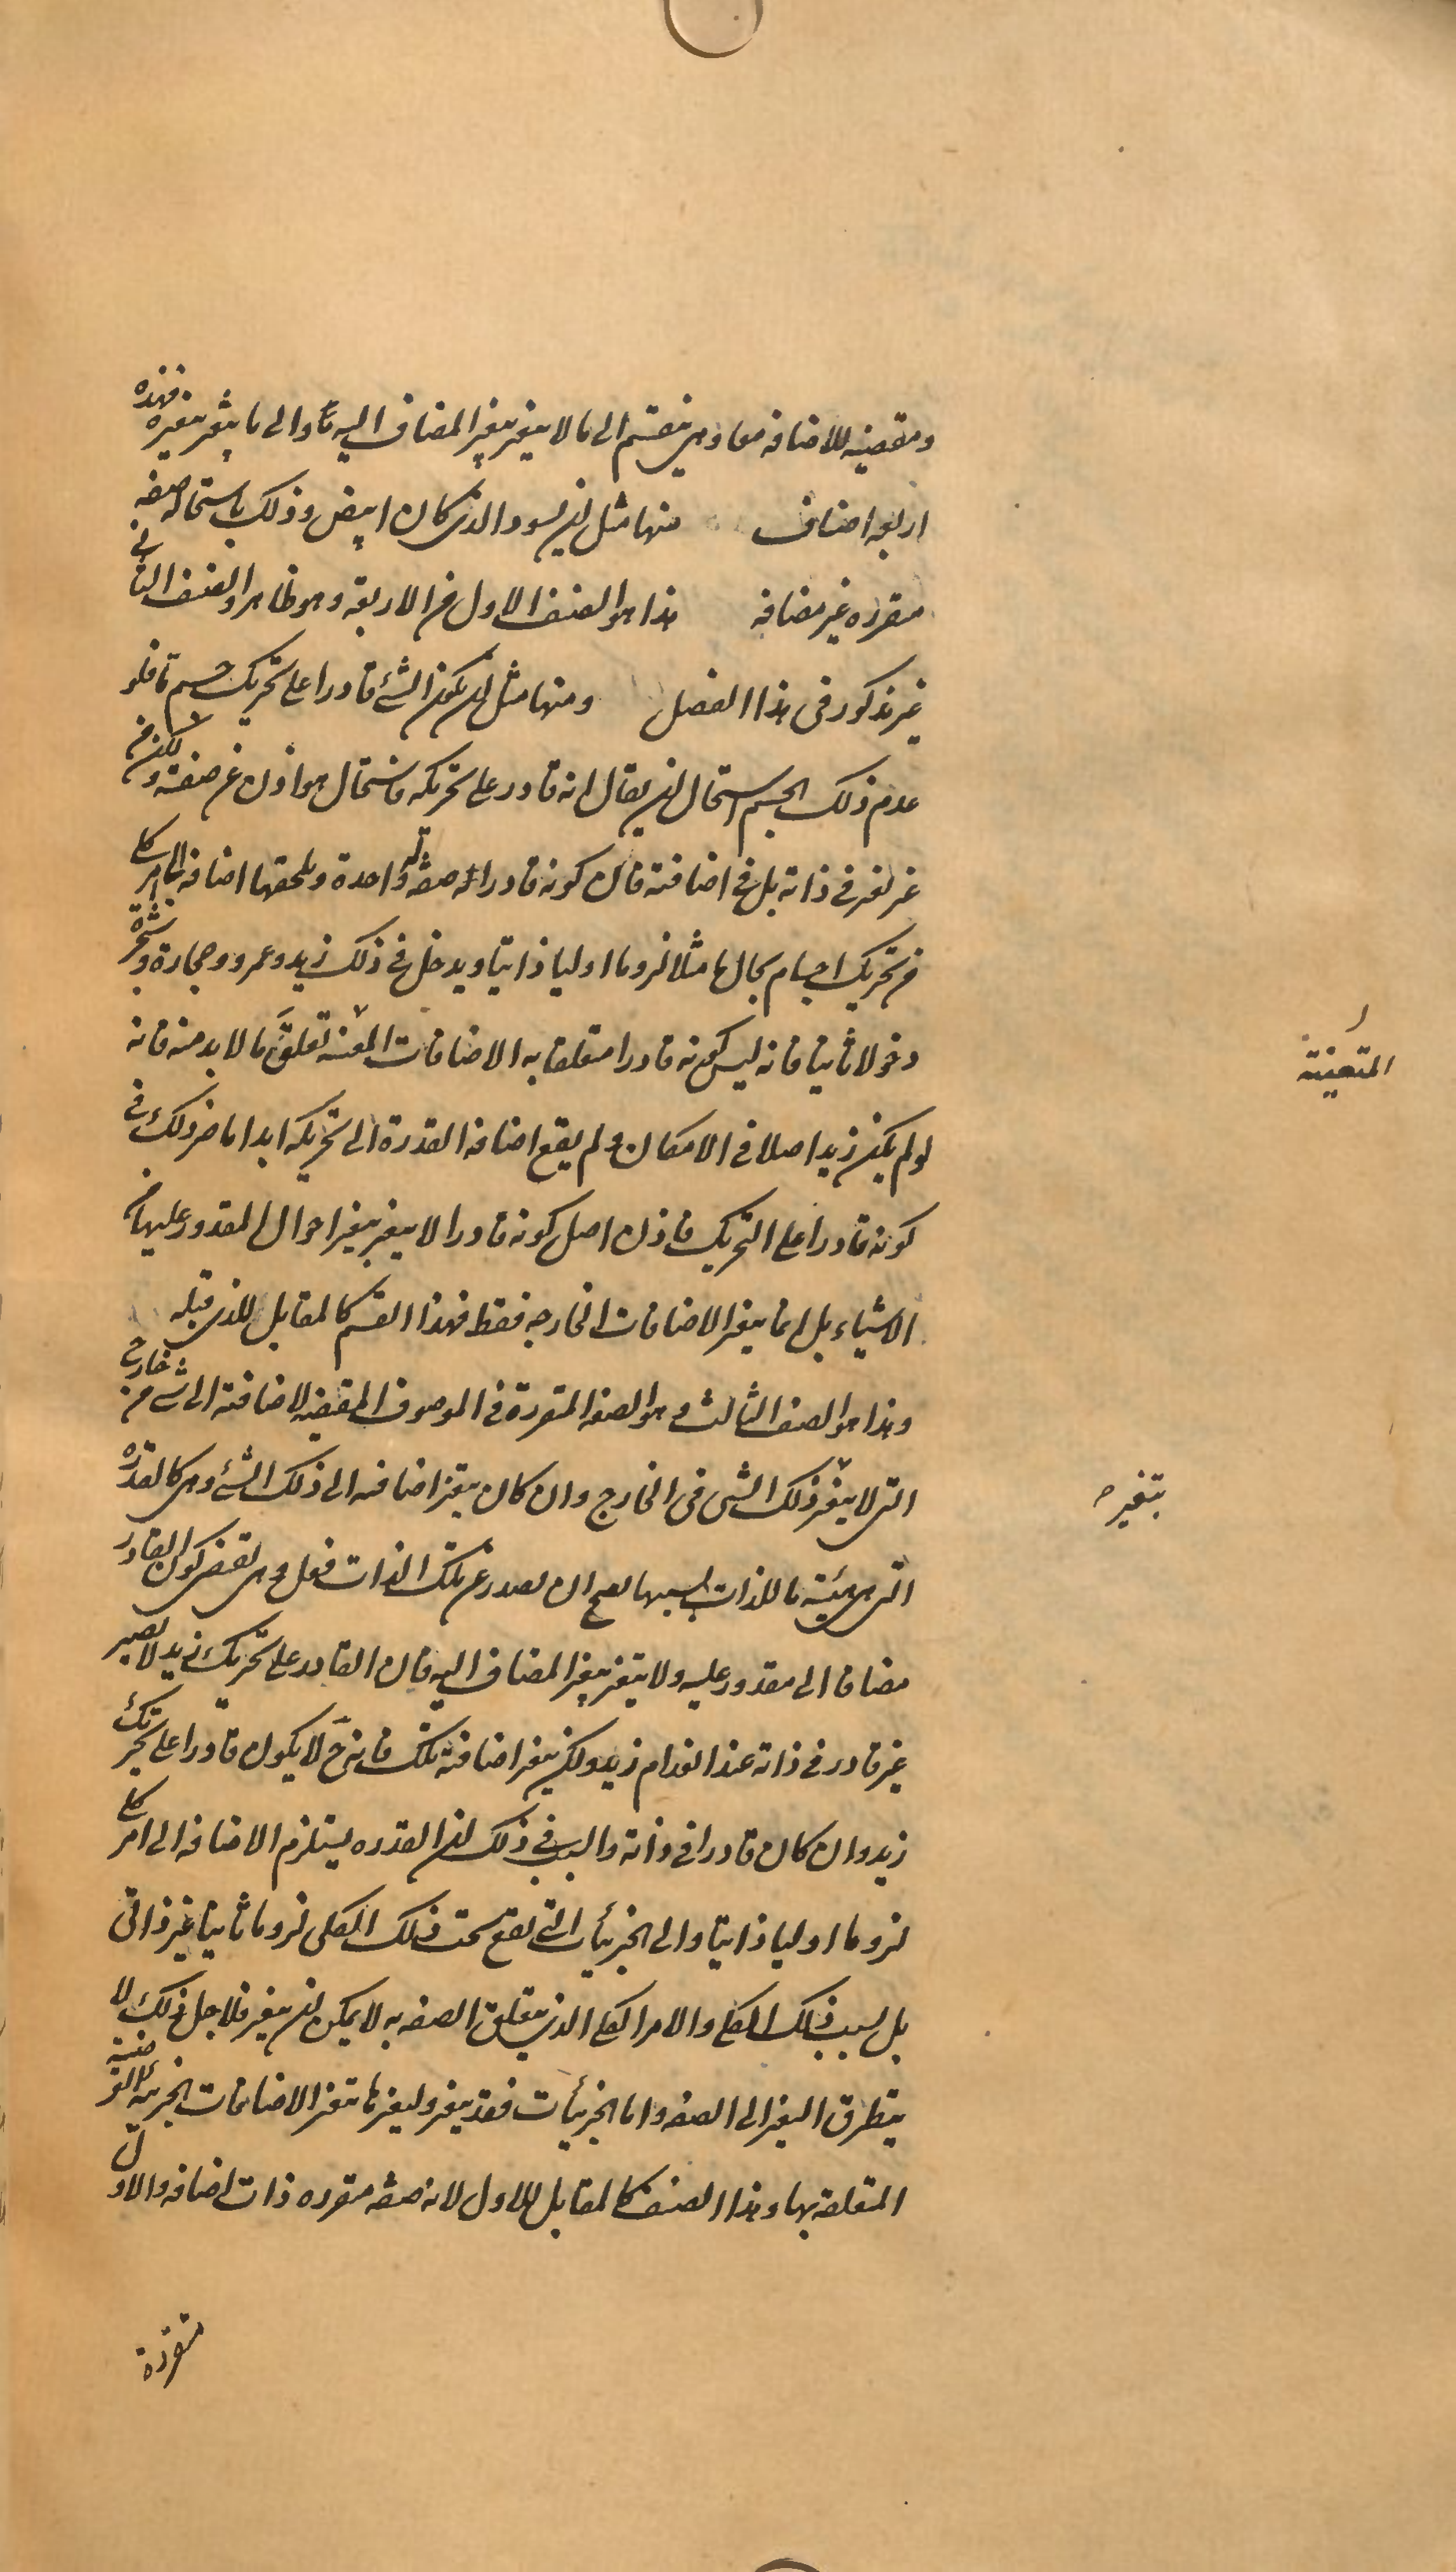 ومقتضيه للاضافه معا وهى ينقسم الى ما لا يتغير بتغير المضاف اليه واليه والى ما يتغير بتغيره فهذه
اربعه اصناف منها مثل ان يسود الذى كان ابيض وذلك باستحاله صفه
متقرره غير مضافه هذا هو الصنف الاول من الاربعة وهو ظاهر والصنف الثانى
غير مذكور فى هذا الفصل ومنها مثل ان يكون الشئ قادرا على تحريك جسم ما فلو
عدم ذلك الجسم استحال ان يقال انه قادر على تحريكه فاستحال هو اذن عن صفته ولكن من
غير تغير فى ذاته بل فى اضافته فان كونه قادرا له صفة له واحدة ويلحقها اضافه الى امر كلى
من تحريك اجسام بحال ما مثلا لزوما اوليا ذاتيا ويدخل فى ذلك زيد وعمرو وحجارة وشجرة
دخولا ثانيا فانه ليس كونه قادرا متعلقا به الاضافات المعينه تعلق ما لا بد منه فانه
لو لم يكن زيد اصلا فى الامكان ولم يقع اضافة القدرة الى تحريكه ابدا ما ضر ذلك فى
كونه قادرا على التحريك فاذن اصل كونه قادرا لا يتغير بتغير احوال المقدور عليها من
الاشياء بل انما يتغير الاضافات الخارجه فقط فهذا القسم كالمقابل للذى قبله
وهذا هو الصنف الثالث وهو الصفه المتقررة فى الموصوف المقتضيه لاضافته الى شئ من خارج
التى لا يتغير ذلك الشى فى الخارج وان كان يتغير اضافته الى ذلك الشئ وهى كالقدره
التى هى هيئة ما للذات بسببها يصح ان يصدر عن تلك الذات فعل وهى يقتضى كون القادر
مضافا الى مقدور عليه ولا يتغير بتغير المضاف اليه فان القادر على تحريك زيد لا يصير
غير قادر فى ذاته عند انعدام زيد ولكن يتغير اضافته تلك فانه ح لا يكون قادرا على تحريك
زيد وان كان قادرا فى ذاته والسبب فى ذلك ان القدره يستلزم الاضافه الى امر كلى
لزوما اوليا ذاتيا والى الجزئيات التى يقع تحت ذلك الكلى لزوما ثانيا غير ذاتى
بل بسبب ذلك الكلى والامر الكلى الذى يتعلق الصفه به لا يمكن ان يتغير فلاجل ذلك لا
يتطرق التغير الى الصفه واما الجزئيات فقد يتغير وبتغيرها يتغير الاضافات الجزئية العرضية
المتعلقه بها وهذا الصنف كالمقابل للاول لانه صفه متقرره ذات اضافه والاول
متقررة
المتعينة
بتغيره